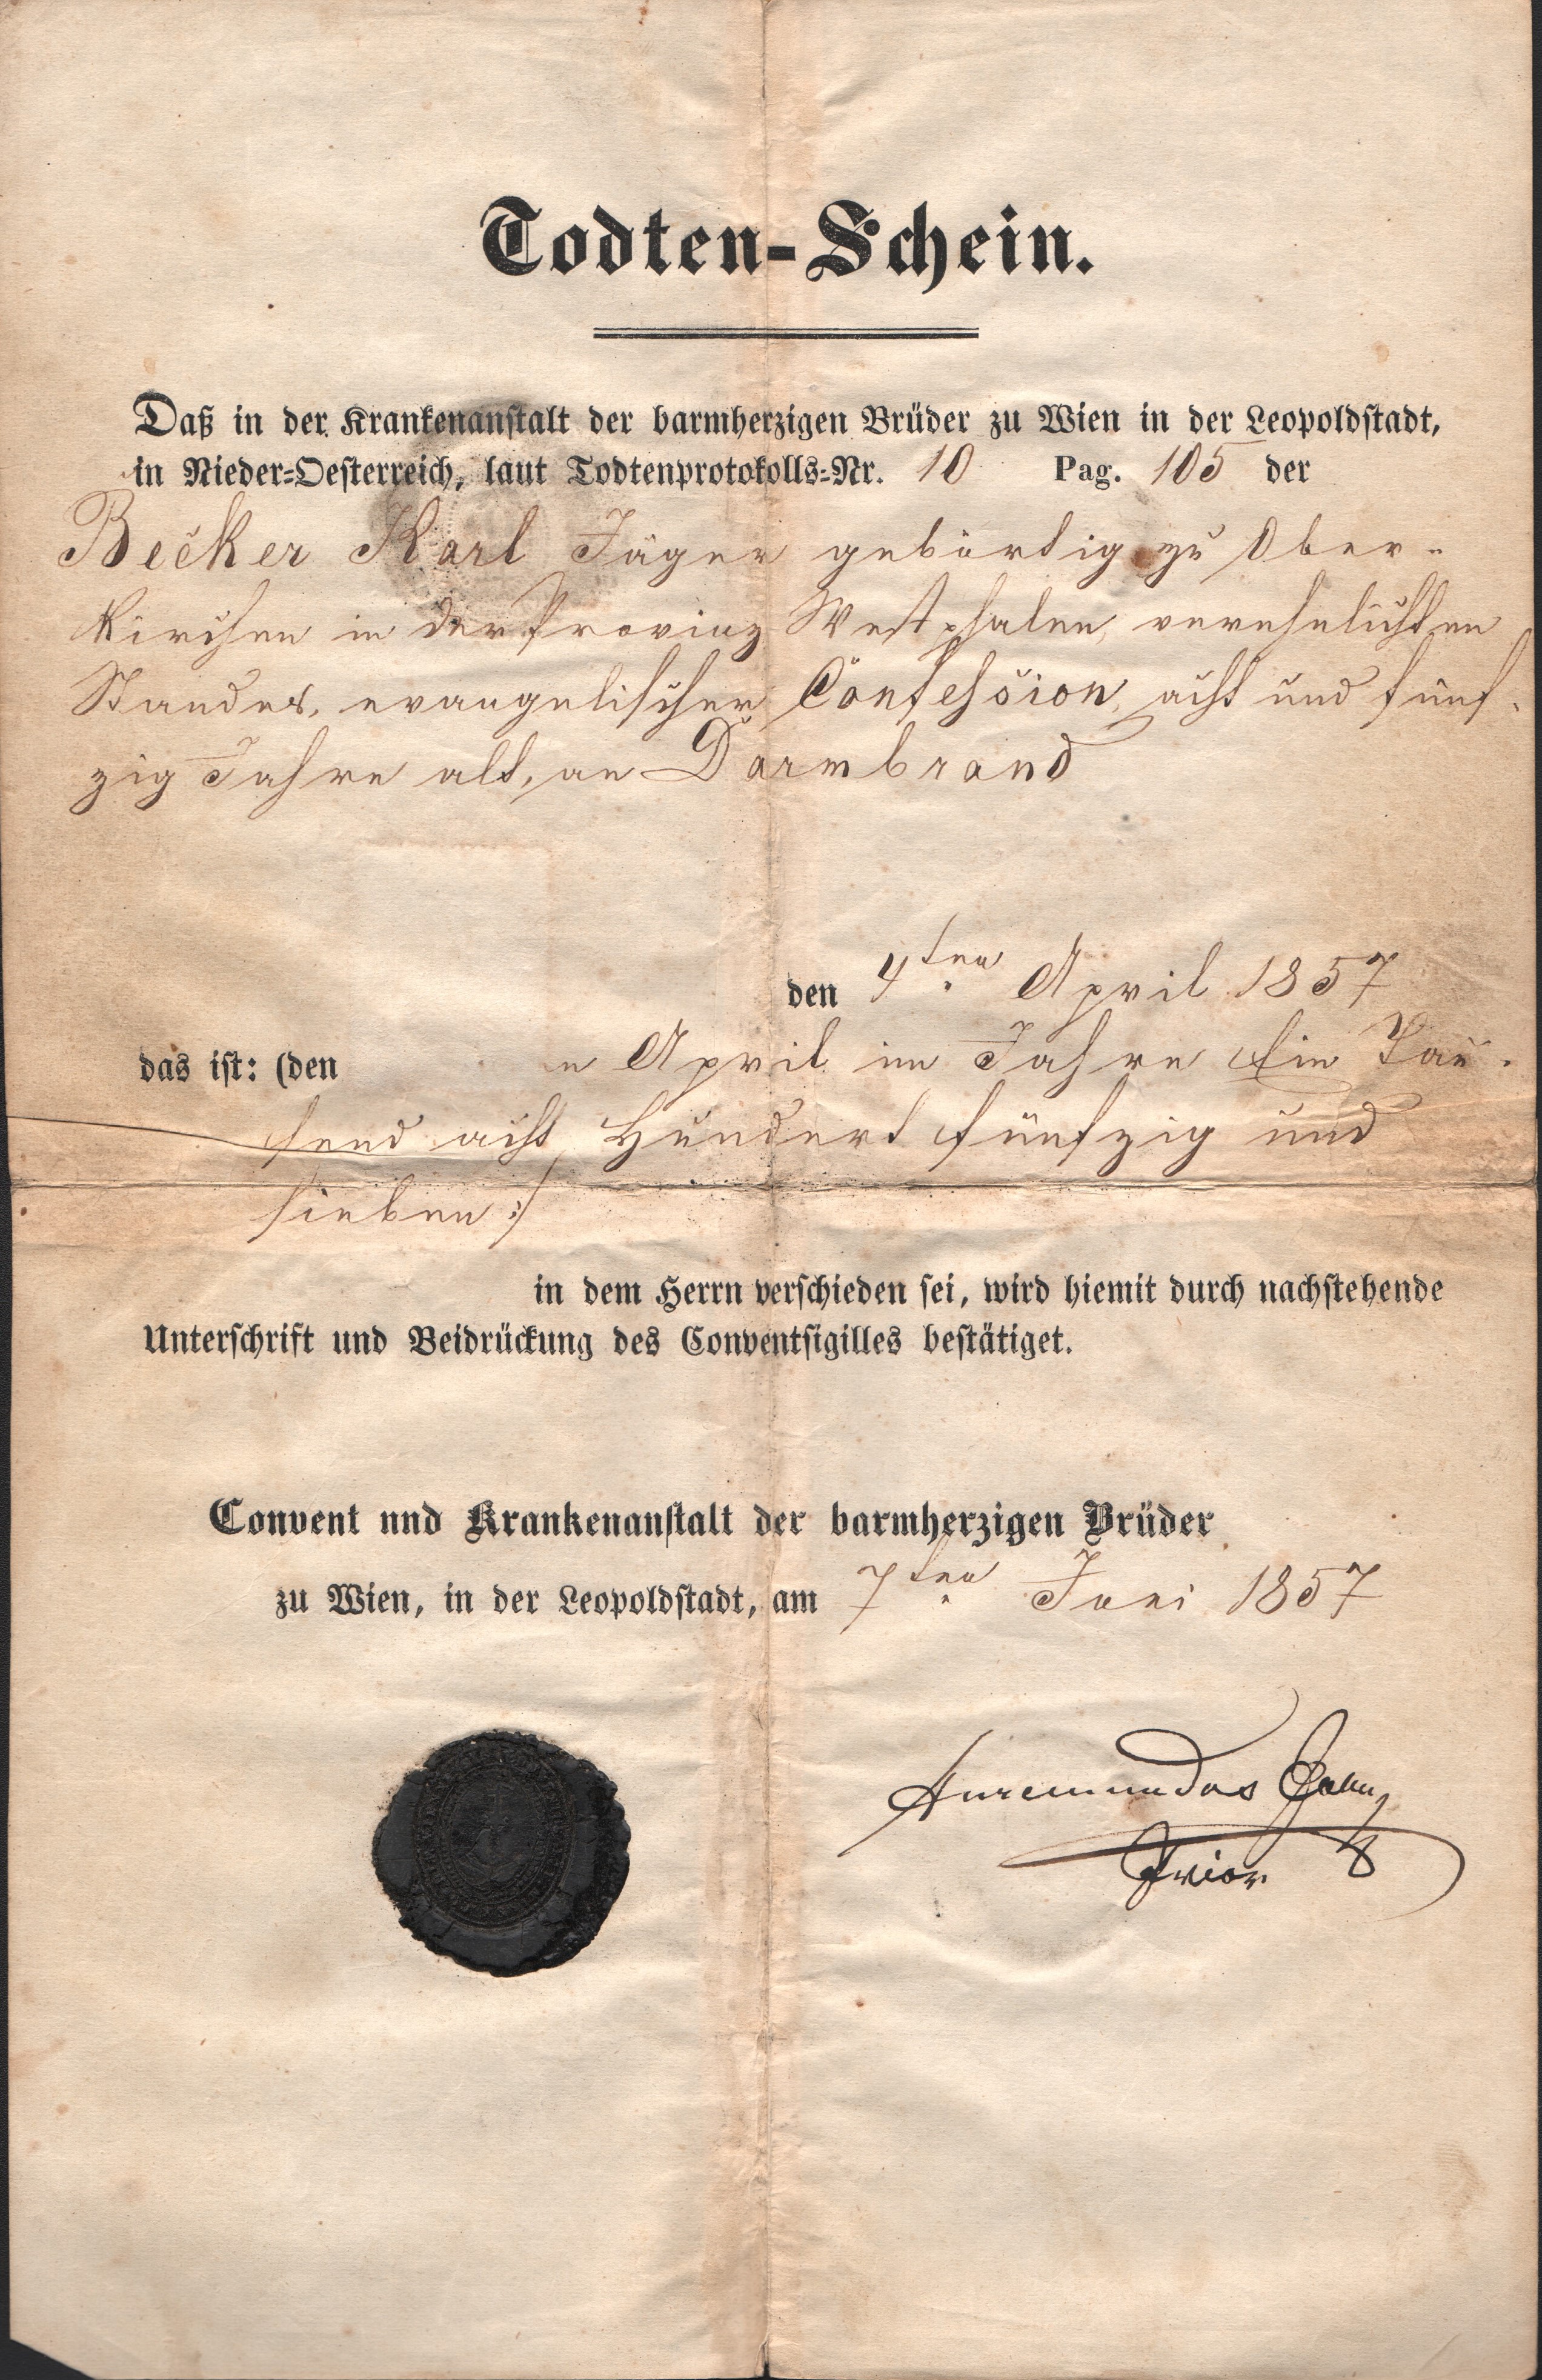 Todten-Schein.
Daß in der Krankenanstalt der barmherzigen Brüder zu Wien in der Leopoldstadt,
in Nieder-Oesterreich, laut Todtenprotokolls-Nr. 10 Pag. 105 der
Becker Karl Jäger gebürtig zu Ober-
kirchen in der Provinz Westphalen, verehelichten
Standes, evangelischer Confession, acht und fünf-
zig Jahre alt, an Darmbrand
den 4ten April 1857
das ist: (den n April im Jahre Ein Tau-
send acht Hundert fünfzig und
sieben :/
in dem Herrn verschieden sei, wird hiemit durch nachstehende
Unterschrift und Beidrückung des Conventsigilles bestätiget.
Convent und Krankenanstalt der barmherzigen Brüder
zu Wien, in der Leopoldstadt, am 7ten Juni 1857
Prior